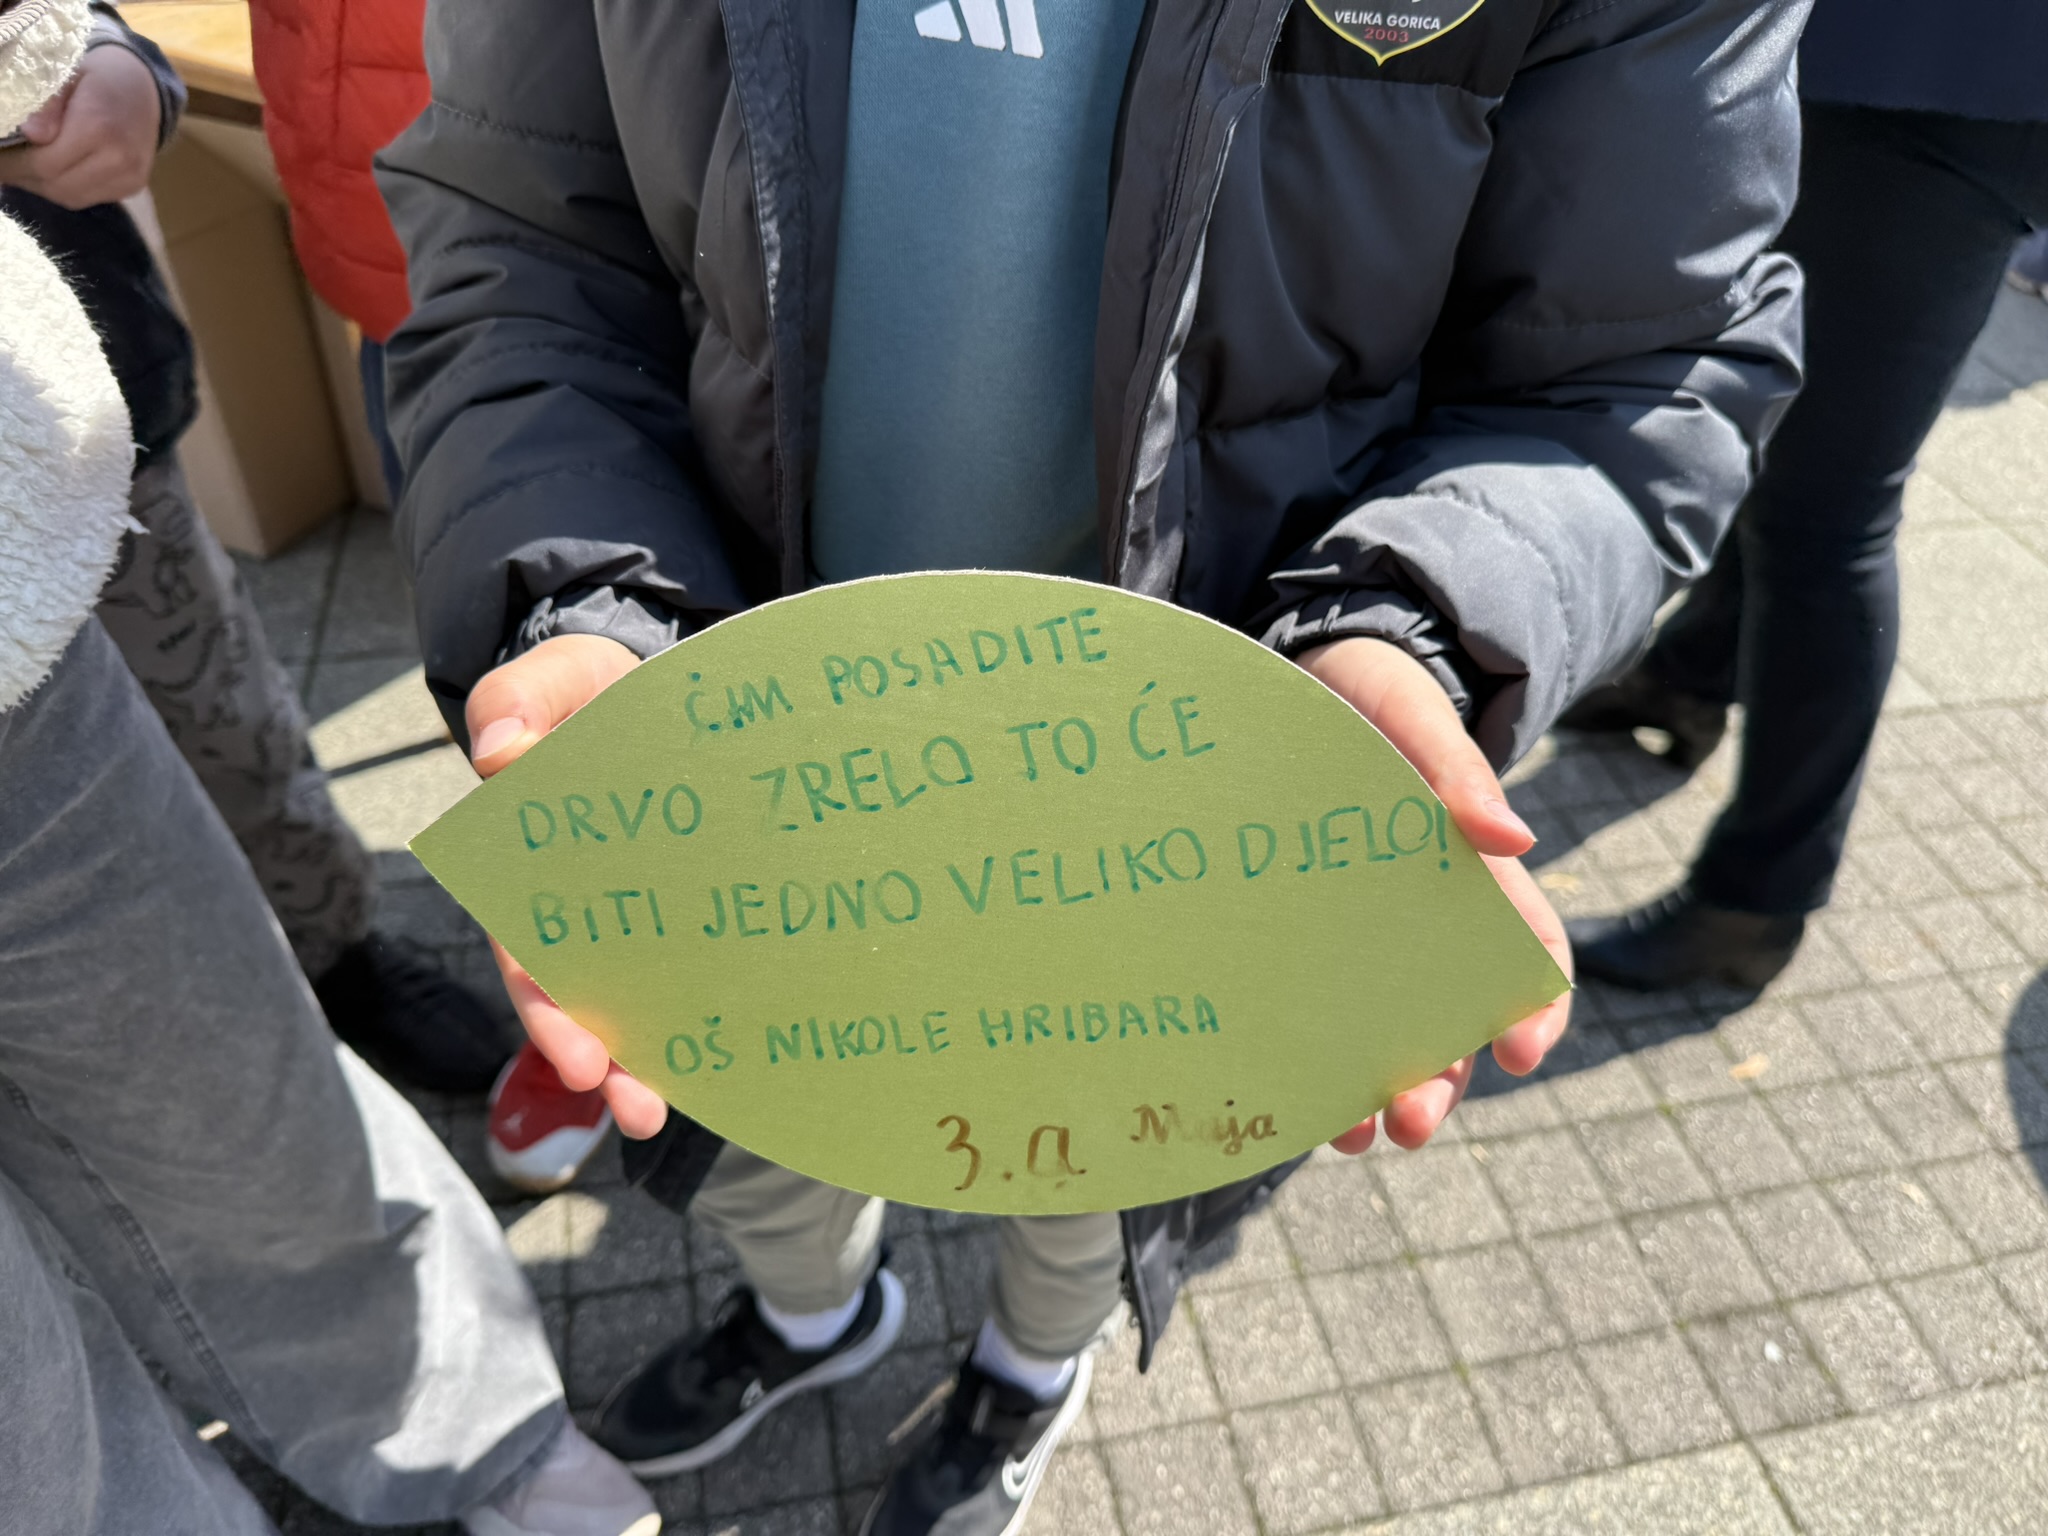 VELIKA GORICA
2003
ČIM POSADITE
DRVO ZRELO TO ĆE
BITI JEDNO VELIKO DJELO!
OŠ NIKOLE HRIBARA
3.a Maja